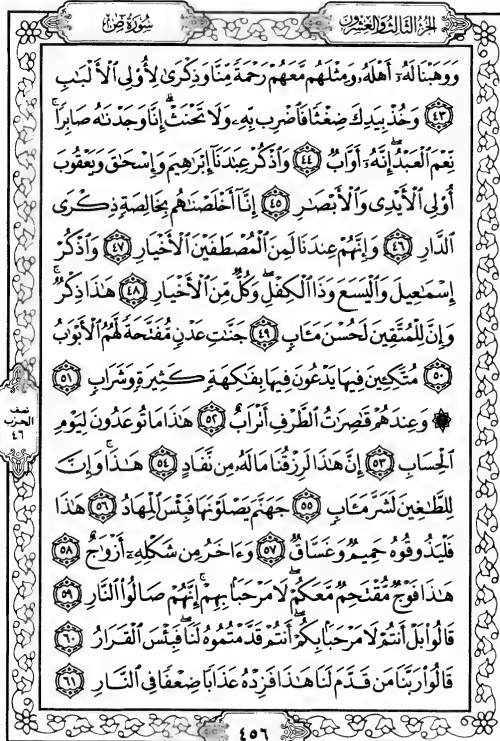 الجزء الثالث والعشرون
سورة ص
وَوَهَبْنَا لَهُۥٓ أَهْلَهُۥ وَمِثْلَهُم مَّعَهُمْ رَحْمَةً مِّنَّا وَذِكْرَىٰ لِأُوْلِى ٱلْأَلْبَٰبِ
﴿٤٣﴾ وَخُذْ بِيَدِكَ ضِغْثًا فَٱضْرِب بِّهِۦ وَلَا تَحْنَثْ ۗ إِنَّا وَجَدْنَٰهُ صَابِرًا ۚ
نِّعْمَ ٱلْعَبْدُ ۖ إِنَّهُۥٓ أَوَّابٌ ﴿٤٤﴾ وَٱذْكُرْ عِبَٰدَنَآ إِبْرَٰهِيمَ وَإِسْحَٰقَ وَيَعْقُوبَ
أُوْلِى ٱلْأَيْدِى وَٱلْأَبْصَٰرِ ﴿٤٥﴾ إِنَّآ أَخْلَصْنَٰهُم بِخَالِصَةٍ ذِكْرَى
ٱلدَّارِ ﴿٤٦﴾ وَإِنَّهُمْ عِندَنَا لَمِنَ ٱلْمُصْطَفَيْنَ ٱلْأَخْيَارِ ﴿٤٧﴾ وَٱذْكُرْ
إِسْمَٰعِيلَ وَٱلْيَسَعَ وَذَا ٱلْكِفْلِ ۖ وَكُلٌّ مِّنَ ٱلْأَخْيَارِ ﴿٤٨﴾ هَٰذَا ذِكْرٌ ۚ
وَإِنَّ لِلْمُتَّقِينَ لَحُسْنَ مَـَٔابٍ ﴿٤٩﴾ جَنَّٰتِ عَدْنٍ مُّفَتَّحَةً لَّهُمُ ٱلْأَبْوَٰبُ
﴿٥٠﴾ مُتَّكِـِٔينَ فِيهَا يَدْعُونَ فِيهَا بِفَٰكِهَةٍ كَثِيرَةٍ وَشَرَابٍ ﴿٥١﴾
۞ وَعِندَهُمْ قَٰصِرَٰتُ ٱلطَّرْفِ أَتْرَابٌ ﴿٥٢﴾ هَٰذَا مَا تُوعَدُونَ لِيَوْمِ
ٱلْحِسَابِ ﴿٥٣﴾ إِنَّ هَٰذَا لَرِزْقُنَا مَا لَهُۥ مِن نَّفَادٍ ﴿٥٤﴾ هَٰذَا ۚ وَإِنَّ
لِلطَّٰغِينَ لَشَرَّ مَـَٔابٍ ﴿٥٥﴾ جَهَنَّمَ يَصْلَوْنَهَا فَبِئْسَ ٱلْمِهَادُ ﴿٥٦﴾ هَٰذَا
فَلْيَذُوقُوهُ حَمِيمٌ وَغَسَّاقٌ ﴿٥٧﴾ وَءَاخَرُ مِن شَكْلِهِۦٓ أَزْوَٰجٌ ﴿٥٨﴾
هَٰذَا فَوْجٌ مُّقْتَحِمٌ مَّعَكُمْ ۖ لَا مَرْحَبًۢا بِهِمْ ۚ إِنَّهُمْ صَالُواْ ٱلنَّارِ ﴿٥٩﴾
قَالُواْ بَلْ أَنتُمْ لَا مَرْحَبًۢا بِكُمْ ۖ أَنتُمْ قَدَّمْتُمُوهُ لَنَا ۖ فَبِئْسَ ٱلْقَرَارُ ﴿٦٠﴾
قَالُواْ رَبَّنَا مَن قَدَّمَ لَنَا هَٰذَا فَزِدْهُ عَذَابًا ضِعْفًا فِى ٱلنَّارِ ﴿٦١﴾
نصف
الحزب
٤٦
٤٥٦